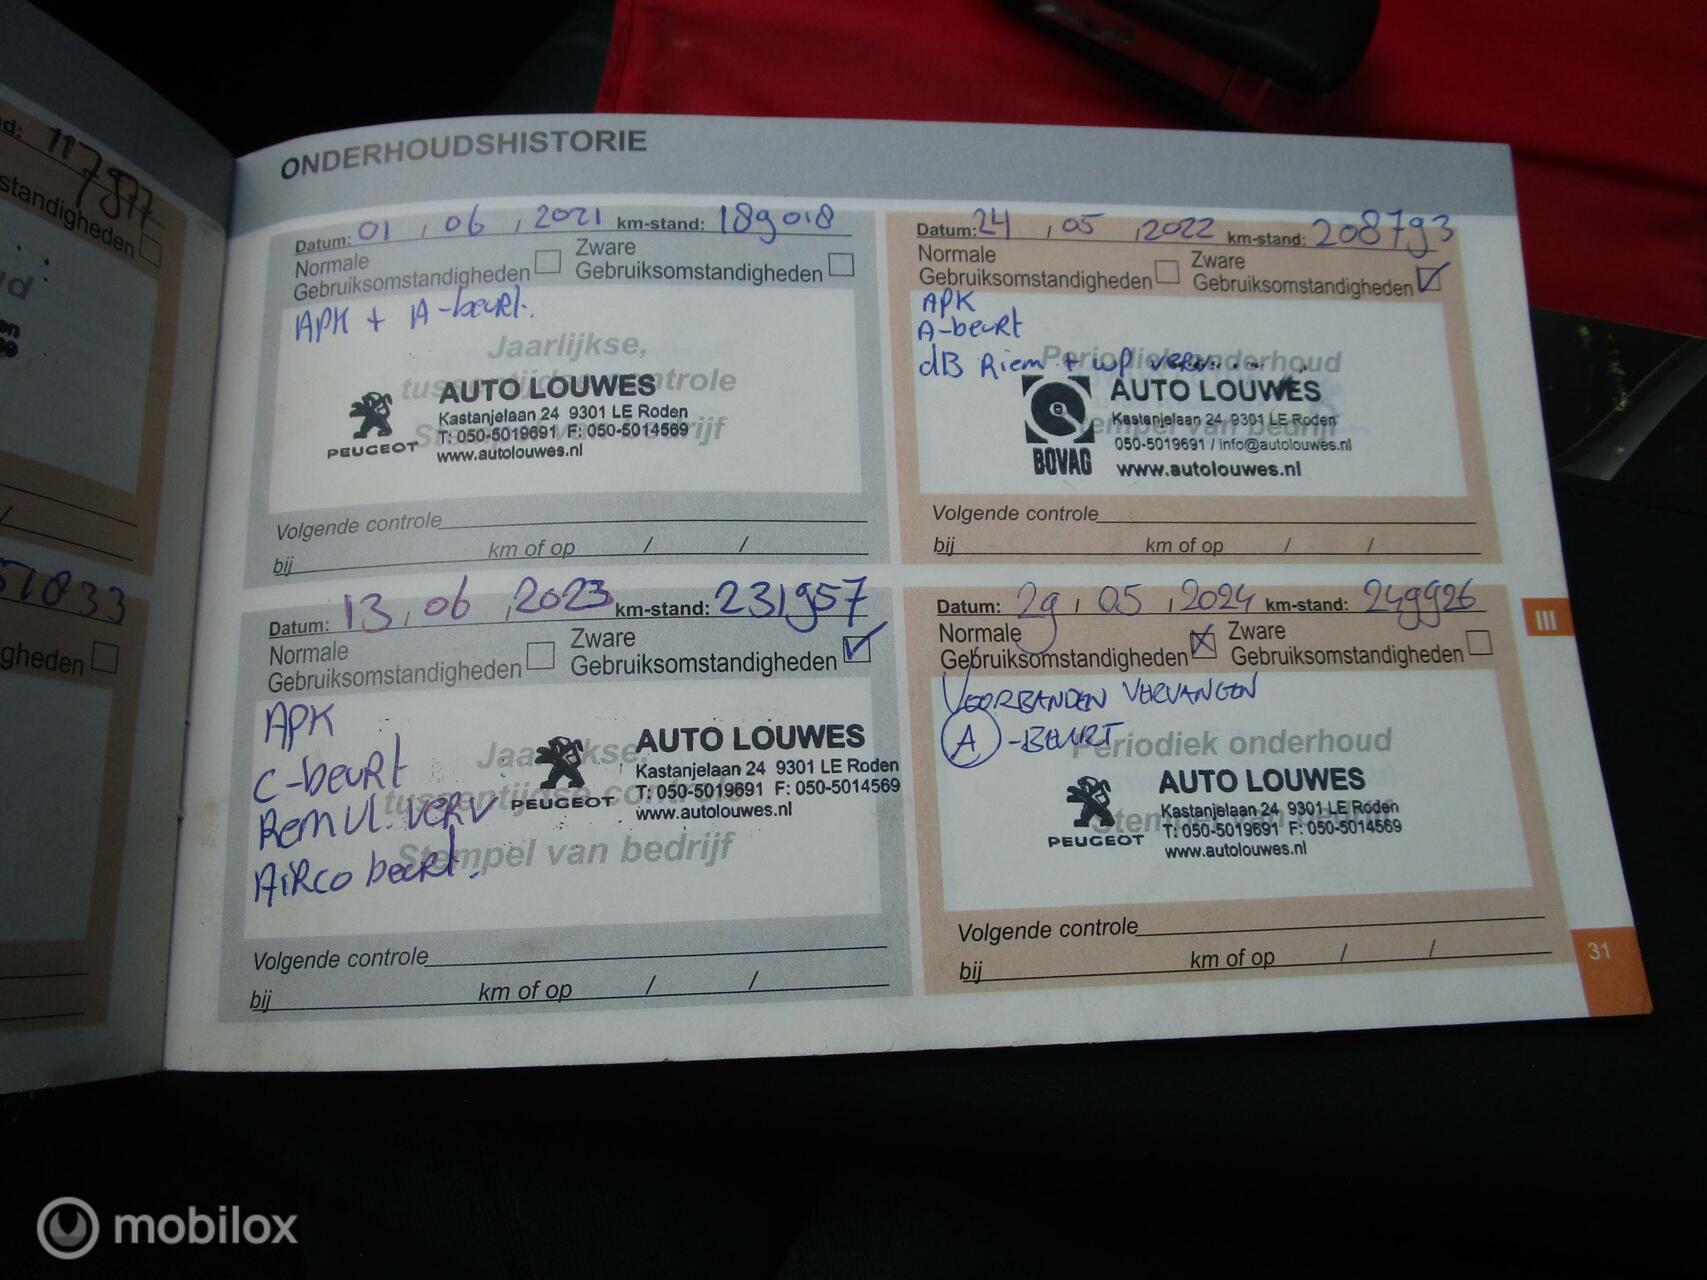 117977
standigheden
51833
gheden
ONDERHOUDSHISTORIE
Datum: 01 / 06 / 2021 km-stand: 189018
Normale Gebruiksomstandigheden
Zware Gebruiksomstandigheden
APK + A-beurt.
Jaarlijkse,
tussentijdse controle
Stempel van bedrijf
PEUGEOT
AUTO LOUWES
Kastanjelaan 24 9301 LE Roden
T: 050-5019691 F: 050-5014569
www.autolouwes.nl
Volgende controle
bij km of op / /
Datum: 24 / 05 / 2022 km-stand: 208793
Normale Gebruiksomstandigheden
Zware Gebruiksomstandigheden
APK
A-beurt
dB Riem + wp
Periodiek onderhoud
Stempel van bedrijf
BOVAG
AUTO LOUWES
Kastanjelaan 24 9301 LE Roden
050-5019691 / info@autolouwes.nl
www.autolouwes.nl
Volgende controle
bij km of op / /
Datum: 13 / 06 / 2023 km-stand: 231957
Normale Gebruiksomstandigheden
Zware Gebruiksomstandigheden
APK
C-beurt
Remvl. verv
Airco beurt.
Jaarlijkse,
tussentijdse controle
Stempel van bedrijf
PEUGEOT
AUTO LOUWES
Kastanjelaan 24 9301 LE Roden
T: 050-5019691 F: 050-5014569
www.autolouwes.nl
Volgende controle
bij km of op / /
Datum: 29 / 05 / 2024 km-stand: 249926
Normale Gebruiksomstandigheden
Zware Gebruiksomstandigheden
VOORBANDEN VERVANGEN
A -BEURT
Periodiek onderhoud
Stempel van bedrijf
PEUGEOT
AUTO LOUWES
Kastanjelaan 24 9301 LE Roden
T: 050-5019691 F: 050-5014569
www.autolouwes.nl
Volgende controle
bij km of op / /
III
31
mobilox